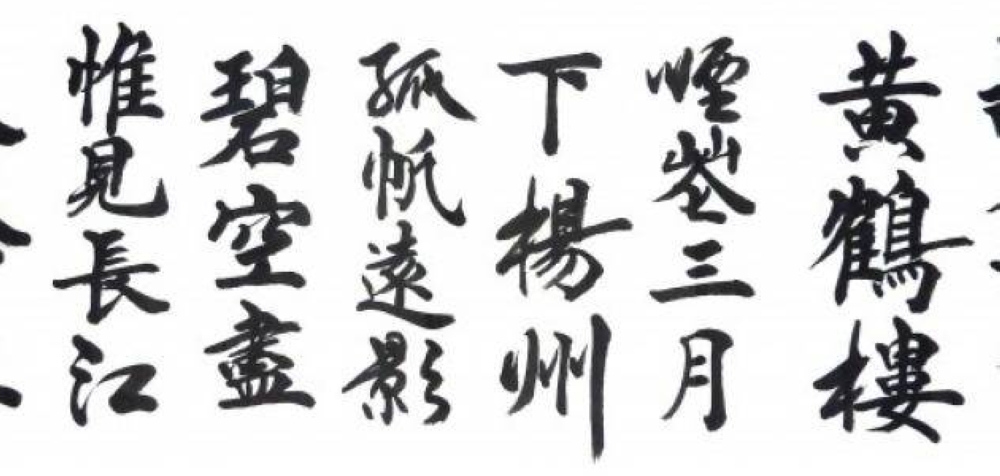 黄鶴樓
煙花三月
下楊州
孤帆遠影
碧空盡
惟見長江